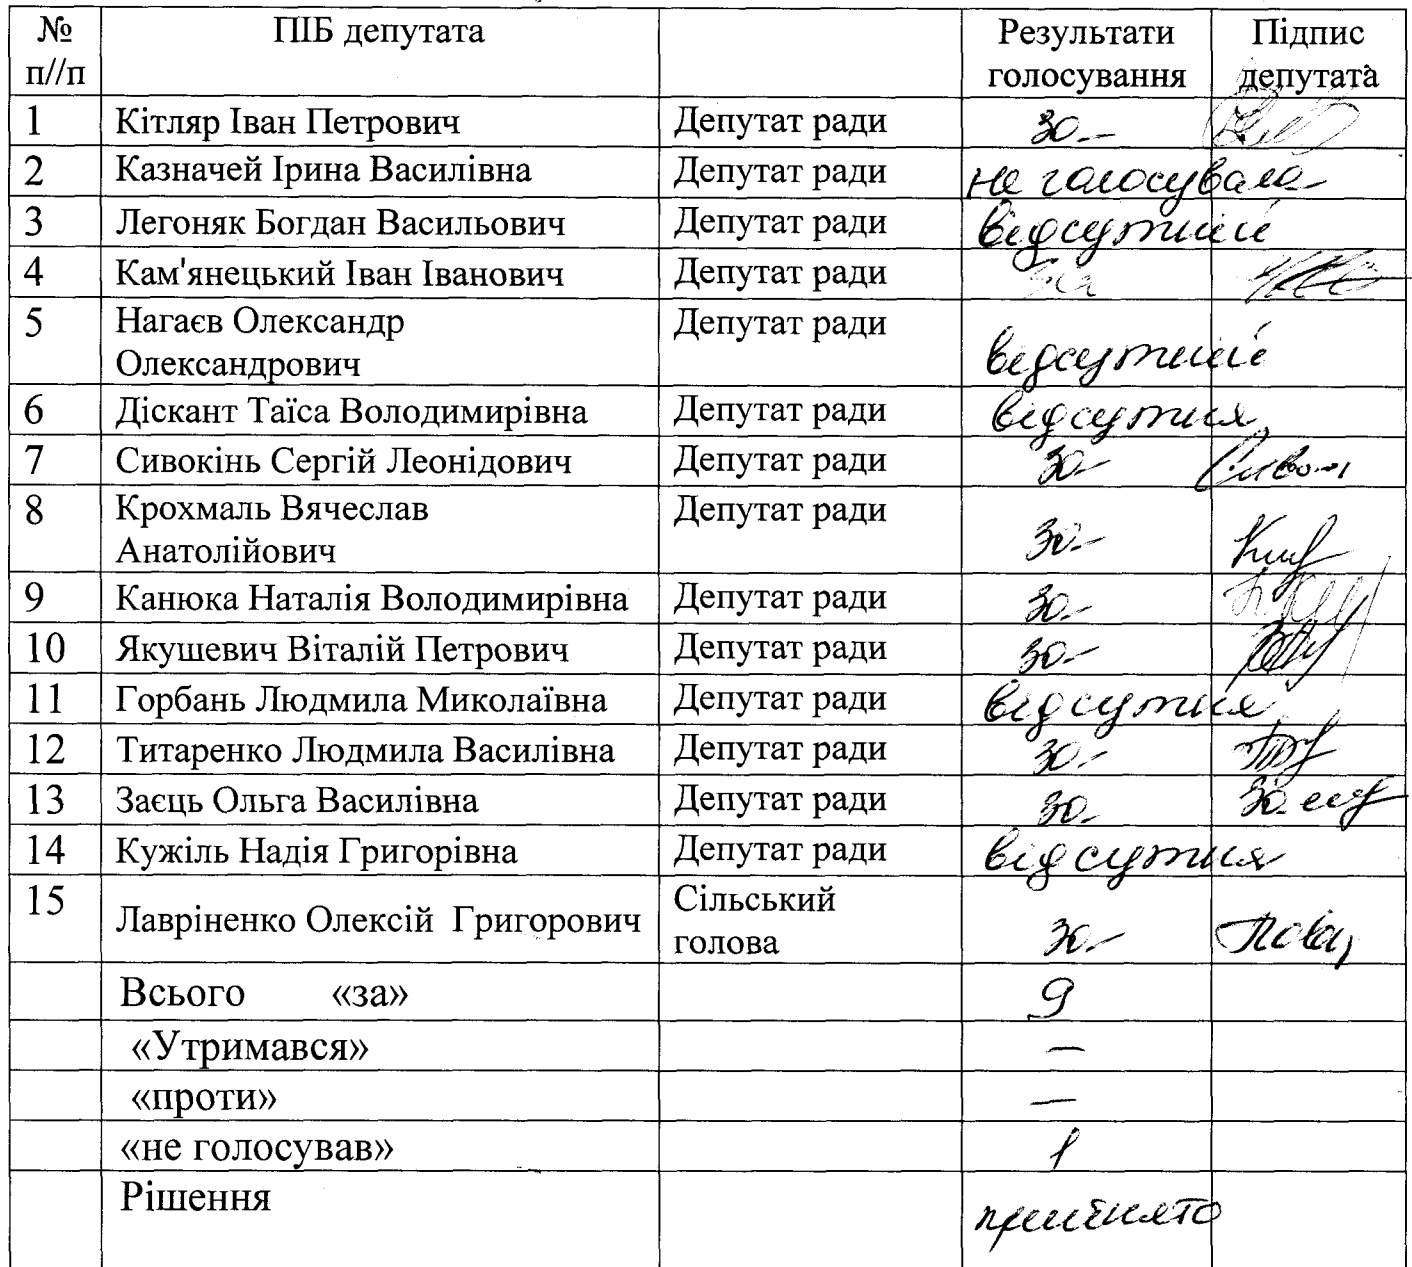 № ПІБ депутата Результати Підпис
п//п голосування депутата
1 Кітляр Іван Петрович Депутат ради за
2 Казначей Ірина Василівна Депутат ради не голосувала
3 Легоняк Богдан Васильович Депутат ради відсутній
4 Кам'янецький Іван Іванович Депутат ради за
5 Нагаєв Олександр Депутат ради
Олександрович відсутній
6 Діскант Таїса Володимирівна Депутат ради відсутня
7 Сивокінь Сергій Леонідович Депутат ради за
8 Крохмаль Вячеслав Депутат ради
Анатолійович за
9 Канюка Наталія Володимирівна Депутат ради за
10 Якушевич Віталій Петрович Депутат ради за
11 Горбань Людмила Миколаївна Депутат ради відсутня
12 Титаренко Людмила Василівна Депутат ради за
13 Заєць Ольга Василівна Депутат ради за
14 Кужіль Надія Григорівна Депутат ради відсутня
15 Сільський
Лавріненко Олексій Григорович голова за
Всього «за» 9
«Утримався» —
«проти» —
«не голосував» 1
Рішення прийнято